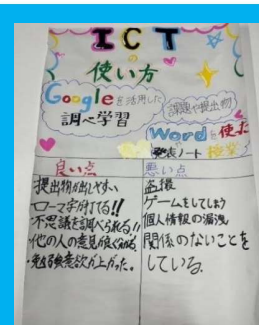 ICT
の
使い方
Googleを活用した
調べ学習
課題や提出物
Wordを使った
発表ノート 授業
良い点
提出物が出しやすい
ローマ字が打てる!!
・不思議を調べられる!!
・他の人の意見が良く分かる
・勉強意欲が上がった。
悪い点
盗撮
ゲームをしてしまう
個人情報の漏洩
関係のないことを
している。